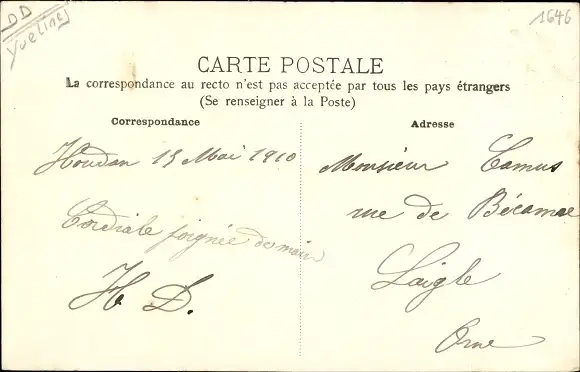 DD
Yveline
1646
CARTE POSTALE
La correspondance au recto n'est pas acceptée par tous les pays étrangers
(Se renseigner à la Poste)
Correspondance
Houdan 13 Mai 1910
Cordiale poignée de main
H D.
Adresse
Monsieur Camus
rue de
Laigle
Orne